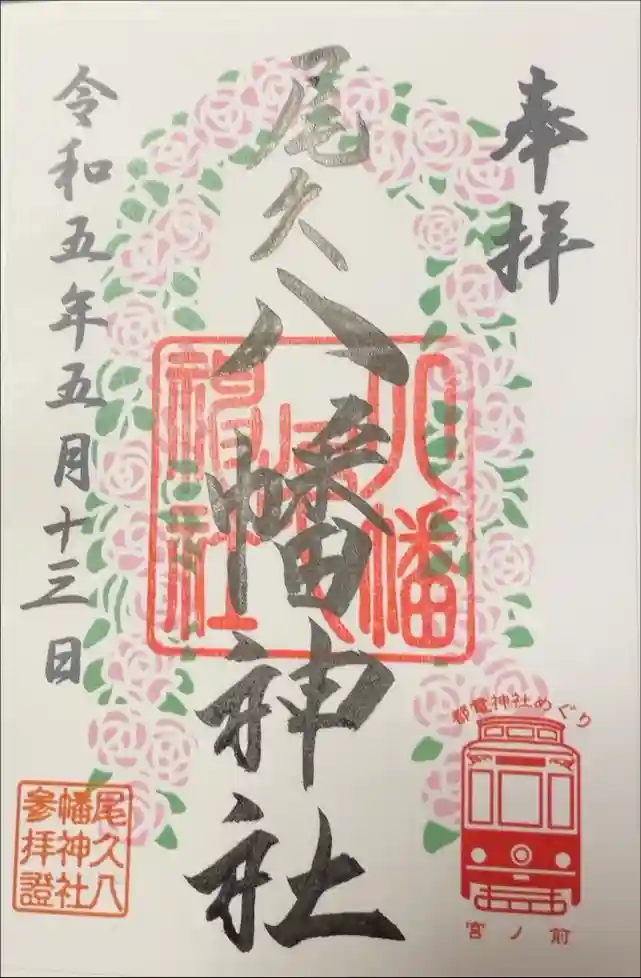 奉拝
尾久八幡神社
令和五年五月十三日
八幡
神社
都電神社めぐり
宮ノ前
尾久八
幡神社
参拝證